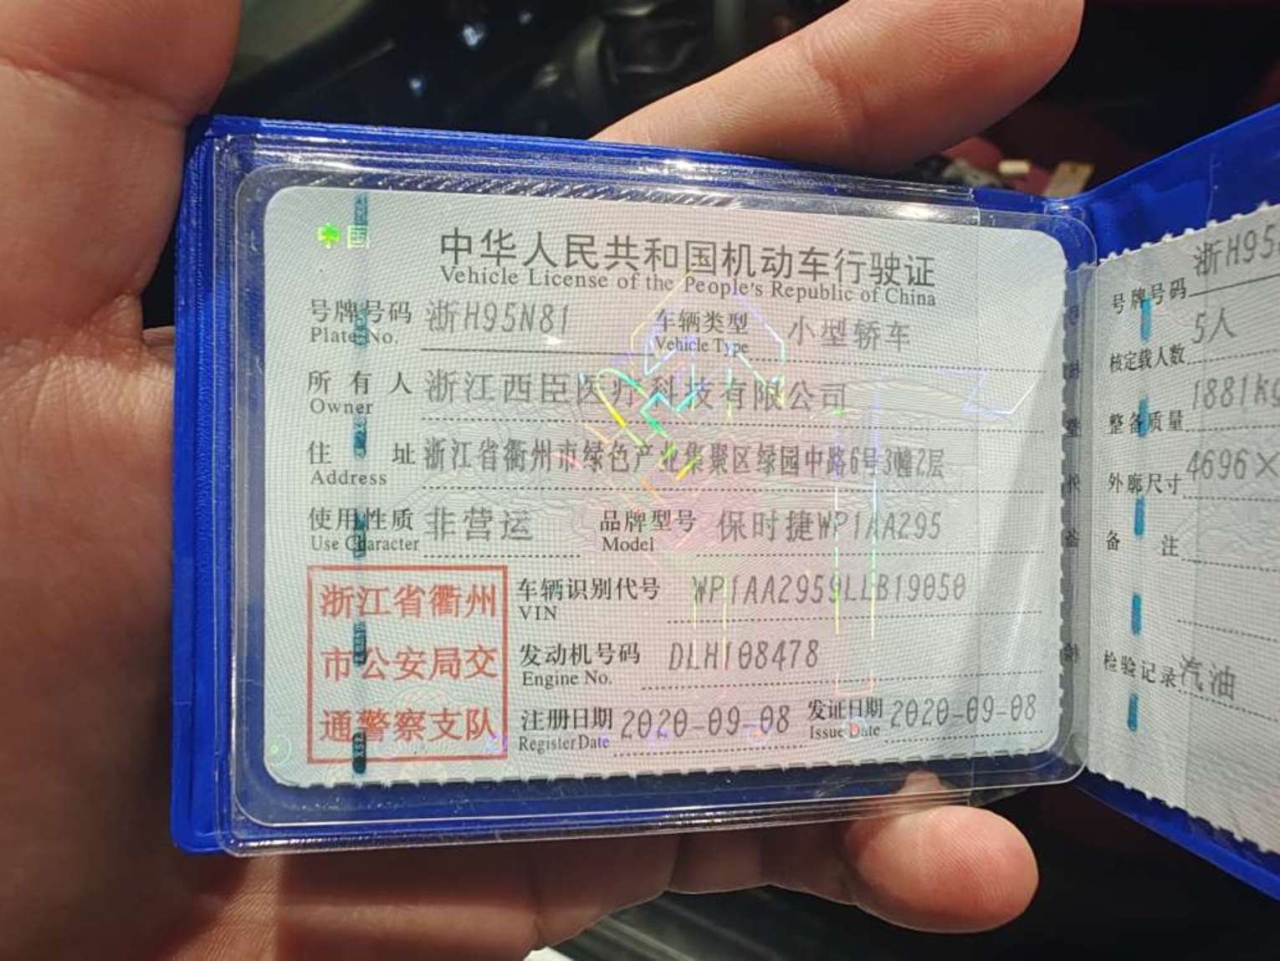 中国
中华人民共和国机动车行驶证
Vehicle License of the People's Republic of China
号牌号码 浙H95N81 车辆类型 小型轿车
Plate No. Vehicle Type
所有人 浙江西臣医疗科技有限公司
Owner
住址 浙江省衢州市绿色产业集聚区绿园中路6号3幢2层
Address
使用性质 非营运 品牌型号 保时捷WP1AA295
Use Character Model
浙江省衢州
市公安局交
通警察支队
车辆识别代号 WP1AA2959LLB19050
VIN
发动机号码 DLH108478
Engine No.
注册日期 2020-09-08 发证日期 2020-09-08
Register Date Issue Date
号牌号码 浙H95
核定载人数 5人
整备质量 1881kg
外廓尺寸 4696×
备注
检验记录 汽油